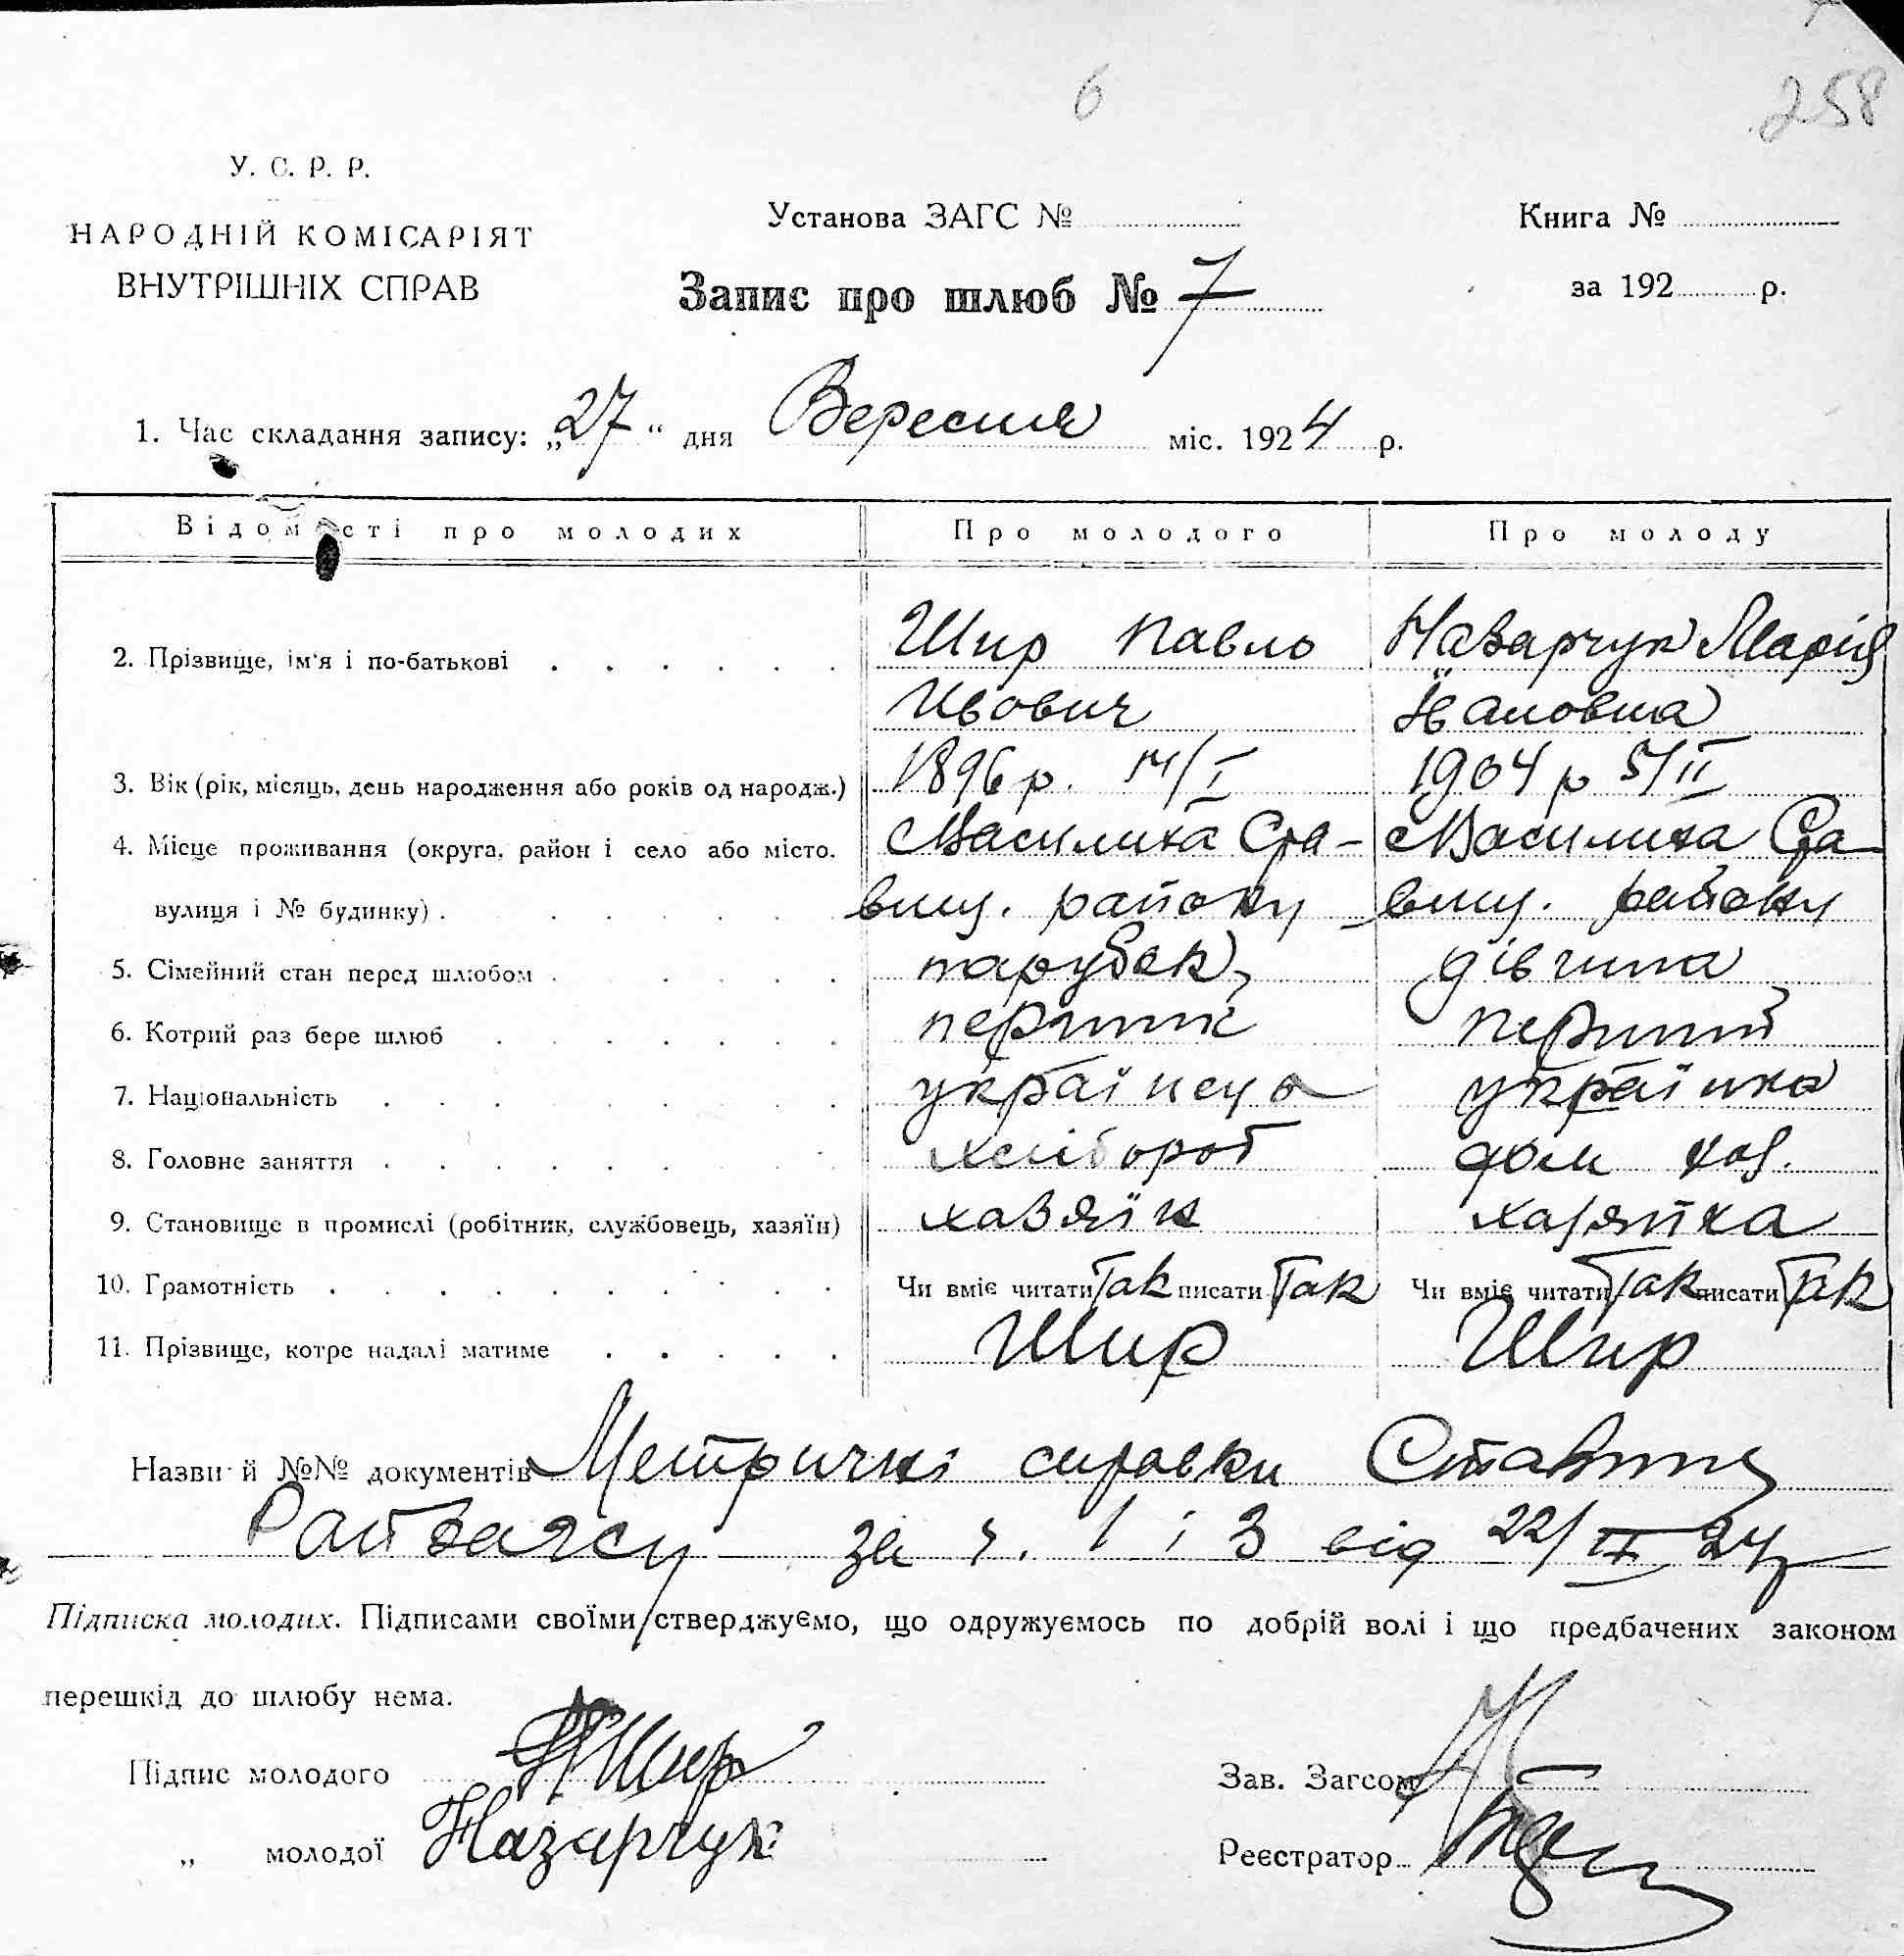 6
258
У. С. Р. Р.
НАРОДНІЙ КОМІСАРІЯТ
ВНУТРІШНІХ СПРАВ
Установа ЗАГС №
Книга №
Запис про шлюб № 7
за 192 р.
1. Час складання запису: „27“ дня Вересня міс. 1924 р.
Відомості про молодих Про молодого Про молоду
2. Прізвище, ім'я і по-батькові Шир Павло Назарчук Марія
Ивович
3. Вік (рік, місяць, день народження або років од народж.) 1896 р. 14/I 1904 р 5/II
4. Місце проживання (округа, район і село або місто, Василиха Ста- Василиха Ста-
вулиця і № будинку) вищ. району вищ. району
5. Сімейний стан перед шлюбом парубок, дівчина
6. Котрий раз бере шлюб перший перший
7. Національність українець українка
8. Головне заняття хлібороб дом хоз.
9. Становище в промислі (робітник, службовець, хазяїн) хазяїн хазяйка
10. Грамотність Чи вміє читати Так писати Так Чи вміє читати Так писати Так
11. Прізвище, котре надалі матиме Шир Шир
Назви й №№ документів Метричні справки Ставищ
Райзагсу за ч. 1 і 3 від 22/IX 24р
Підписка молодих. Підписами своїми стверджуємо, що одружуємось по добрій волі і що предбачених законом
перешкід до шлюбу нема.
Підпис молодого Шир
Зав. Загсом
„ молодої Назарчук
Реєстратор